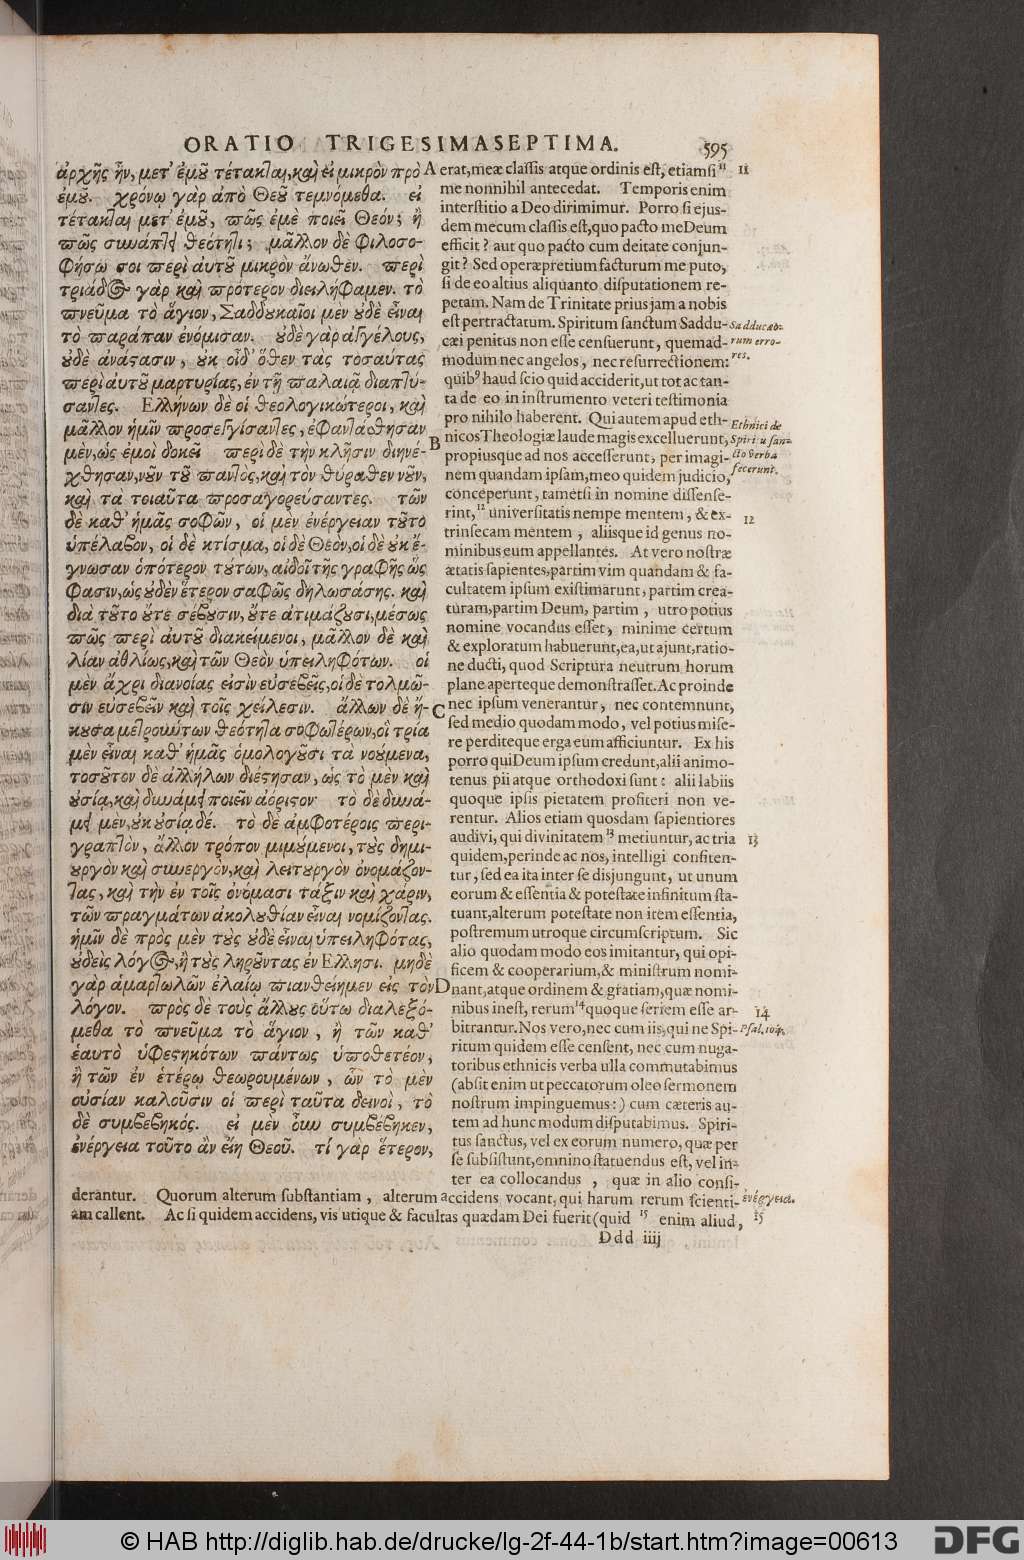 ORATIO TRIGESIMASEPTIMA. 595
ἀρχῆς ἦν, μετ' ἐμοῦ τέτακται, καὶ εἰ μικρὸν πρὸ
ἐμοῦ. χρόνῳ γὰρ ἀπὸ Θεοῦ τεμνόμεθα. εἰ
τέτακται μετ' ἐμοῦ, πῶς ἐμὲ ποιεῖ Θεόν; ἢ
πῶς συνάπτει θεότητι; μᾶλλον δὲ φιλοσο-
φήσω σοι περὶ αὐτοῦ μικρὸν ἄνωθεν. περὶ
τριάδος γὰρ καὶ πρότερον διειλήφαμεν. τὸ
πνεῦμα τὸ ἅγιον, Σαδδουκαῖοι μεν οὐδὲ εἶναι
τὸ παράπαν ἐνόμισαν. οὐδὲ γὰρ ἀγγέλους,
οὐδὲ ἀνάστασιν, οὐκ οἶδ' ὅθεν τὰς τοσαύτας
περὶ αὐτοῦ μαρτυρίας, ἐν τῇ παλαιᾷ διαπτύ-
σαντες. Ἑλλήνων δὲ οἱ θεολογικώτεροι, καὶ
μᾶλλον ἡμῖν προσεγγίσαντες, ἐφαντάσθησαν
μὲν, ὡς ἐμοὶ δοκεῖ περὶ δὲ τὴν κλῆσιν διηνέ-
χθησαν, νοῦν τοῦ παντὸς, καὶ τὸν θύραθεν νοῦν,
καὶ τὰ τοιαῦτα προσαγορεύσαντες. τῶν
δὲ καθ' ἡμᾶς σοφῶν, οἱ μὲν ἐνέργειαν τοῦτο
ὑπέλαβον, οἱ δὲ κτίσμα, οἱ δὲ Θεὸν, οἱ δὲ οὐκ ἔ-
γνωσαν ὁπότερον τούτων, αἰδοῖ τῆς γραφῆς ὡς
φασιν, ὡς οὐδὲν ἕτερον σαφῶς δηλωσάσης. καὶ
διὰ τοῦτο οὔτε σέβουσιν, οὔτε ἀτιμάζουσι, μέσως
πῶς περὶ αὐτοῦ διακείμενοι, μᾶλλον δὲ καὶ
λίαν ἀθλίως, καὶ τῶν Θεὸν ὑπειληφότων. οἱ
μὲν ἄχρι διανοίας εἰσὶν εὐσεβεῖς, οἱ δὲ τολμῶ-
σιν εὐσεβεῖν καὶ τοῖς χείλεσιν. ἄλλων δὲ ἤ-
κουσα μετρούντων θεότητα σοφωτέρων, οἳ τρία
μὲν εἶναι καθ' ἡμᾶς ὁμολογοῦσι τὰ νούμενα,
τοσοῦτον δὲ ἀλλήλων διέστησαν, ὡς τὸ μὲν καὶ
οὐσίᾳ, καὶ δυνάμει ποιεῖν ἀόριστον· τὸ δὲ δυνά-
μει μὲν, οὐκ οὐσίᾳ δέ. τὸ δὲ ἀμφοτέροις περι-
γραπτὸν, ἄλλον τρόπον μιμούμενοι, τοὺς δημι-
ουργὸν καὶ συνεργὸν, καὶ λειτουργὸν ὀνομάζον-
τας, καὶ τὴν ἐν τοῖς ὀνόμασι τάξιν καὶ χάριν,
τῶν πραγμάτων ἀκολουθίαν εἶναι νομίζοντας.
ἡμῖν δὲ πρὸς μὲν τοὺς οὐδὲ εἶναι ὑπειληφότας,
οὐδεὶς λόγος, ἢ τοὺς ληροῦντας ἐν Ἕλλησι. μηδὲ
γὰρ ἁμαρτωλῶν ἐλαίῳ πιανθείημεν εἰς τὸν
λόγον. πρὸς δὲ τοὺς ἄλλους οὕτω διαλεξό-
μεθα τὸ πνεῦμα τὸ ἅγιον, ἢ τῶν καθ'
ἑαυτὸ ὑφεστηκότων πάντως ὑποθετέον,
ἢ τῶν ἐν ἑτέρῳ θεωρουμένων, ὧν τὸ μὲν
οὐσίαν καλοῦσιν οἱ περὶ ταῦτα δεινοὶ, τὸ
δὲ συμβεβηκός. εἰ μὲν οὖν συμβέβηκεν,
ἐνέργεια τοῦτο ἂν εἴη Θεοῦ. τί γὰρ ἕτερον,
A erat, meæ classis atque ordinis est, etiamsi 11
me nonnihil antecedat. Temporis enim
interstitio a Deo dirimimur. Porro si ejus-
dem mecum classis est, quo pacto me Deum
efficit? aut quo pacto cum deitate conjun-
git? Sed operæpretium facturum me puto,
si de eo altius aliquanto disputationem re-
petam. Nam de Trinitate prius jam a nobis
est pertractatum. Spiritum sanctum Saddu-
cæi penitus non esse censuerunt, quemad-
modum nec angelos, nec resurrectionem:
quib9 haud scio quid acciderit, ut tot ac tan-
ta de eo in instrumento veteri testimonia
pro nihilo haberent. Qui autem apud eth-
B nicos Theologiæ laude magis excelluerunt,
propiusque ad nos accesserunt, per imagi-
nem quandam ipsam, meo quidem judicio,
conceperunt, tametsi in nomine dissense-
rint, 12 universitatis nempe mentem, & ex-
trinsecam mentem, aliisque id genus no-
minibus eum appellantes. At vero nostræ
ætatis sapientes, partim vim quandam & fa-
cultatem ipsum existimarunt, partim crea-
turam, partim Deum, partim, utro potius
nomine vocandus esset, minime certum
& exploratum habuerunt, ea, ut ajunt, ratio-
ne ducti, quod Scriptura neutrum horum
plane aperteque demonstrasset. Ac proinde
C nec ipsum venerantur, nec contemnunt,
sed medio quodam modo, vel potius mise-
re perditeque erga eum afficiuntur. Ex his
porro qui Deum ipsum credunt, alii animo-
tenus pii atque orthodoxi sunt: alii labiis
quoque ipsis pietatem profiteri non ve-
rentur. Alios etiam quosdam sapientiores
audivi, qui divinitatem 13 metiuntur, ac tria
quidem, perinde ac nos, intelligi confiten-
tur, sed ea ita inter se disjungunt, ut unum
eorum & essentia & potestate infinitum sta-
tuant, alterum potestate non item essentia,
postremum utroque circumscriptum. Sic
alio quodam modo eos imitantur, qui opi-
ficem & cooperarium, & ministrum nomi-
D nant, atque ordinem & gratiam, quæ nomi-
nibus inest, rerum 14 quoque seriem esse ar-
bitrantur. Nos vero, nec cum iis, qui ne Spi-
ritum quidem esse censent, nec cum nuga-
toribus ethnicis verba ulla commutabimus
(absit enim ut peccatorum oleo sermonem
nostrum impinguemus:) cum cæteris au-
tem ad hunc modum disputabimus. Spiri-
tus sanctus, vel ex eorum numero, quæ per
se subsistunt, omnino statuendus est, vel in-
ter ea collocandus, quæ in alio consi-
derantur. Quorum alterum substantiam, alterum accidens vocant, qui harum rerum scienti-
am callent. Ac si quidem accidens, vis utique & facultas quædam Dei fuerit (quid 15 enim aliud,
Ddd iiij
11
Sadducæo-
rum erro-
res.
Ethnici de
Spiritu san-
cto verba
fecerunt.
12
13
14
Psal. 104.
ἐνέργεια.
15
© HAB http://diglib.hab.de/drucke/lg-2f-44-1b/start.htm?image=00613
DFG